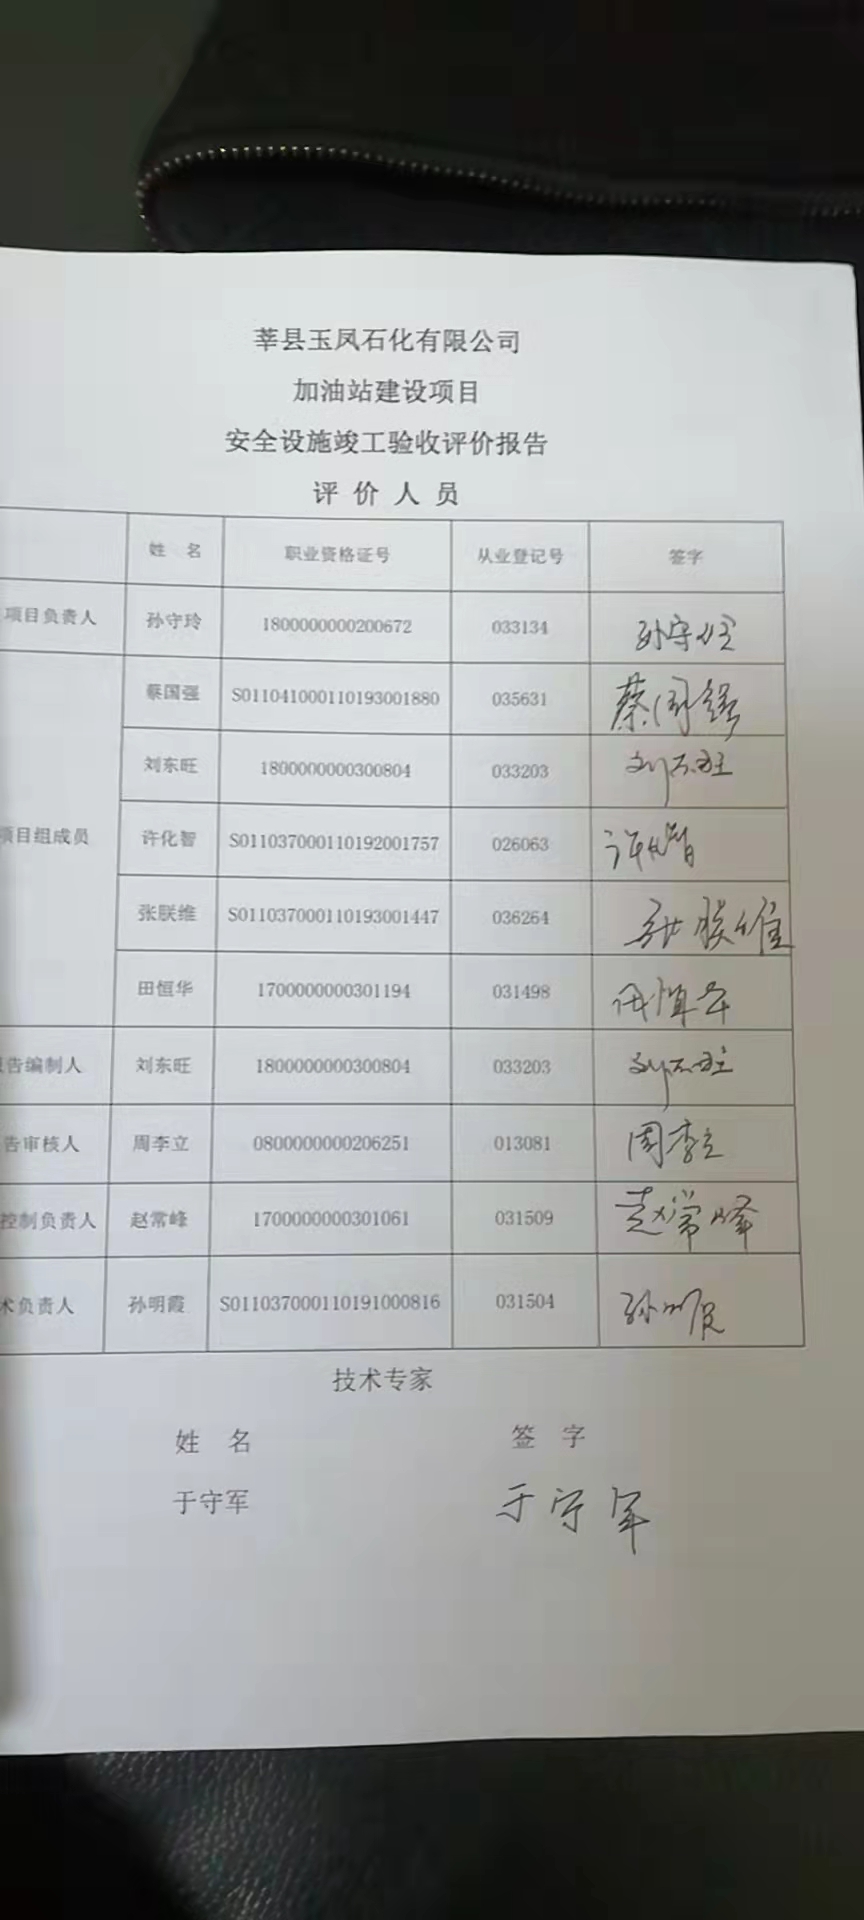 莘县玉凤石化有限公司
加油站建设项目
安全设施竣工验收评价报告
评 价 人 员
姓 名 职业资格证号 从业登记号 签字
项目负责人 孙守玲 1800000000200672 033134 孙守玲
蔡国强 S011041000110193001880 035631 蔡国强
刘东旺 1800000000300804 033203 刘东旺
项目组成员 许化智 S011037000110192001757 026063 许化智
张朕维 S011037000110193001447 036264 张朕维
田恒华 1700000000301194 031498 田恒华
告编制人 刘东旺 1800000000300804 033203 刘东旺
告审核人 周李立 0800000000206251 013081 周李立
控制负责人 赵常峰 1700000000301061 031509 赵常峰
术负责人 孙明霞 S011037000110191000816 031504 孙明霞
技术专家
姓 名 签 字
于守军 于守军